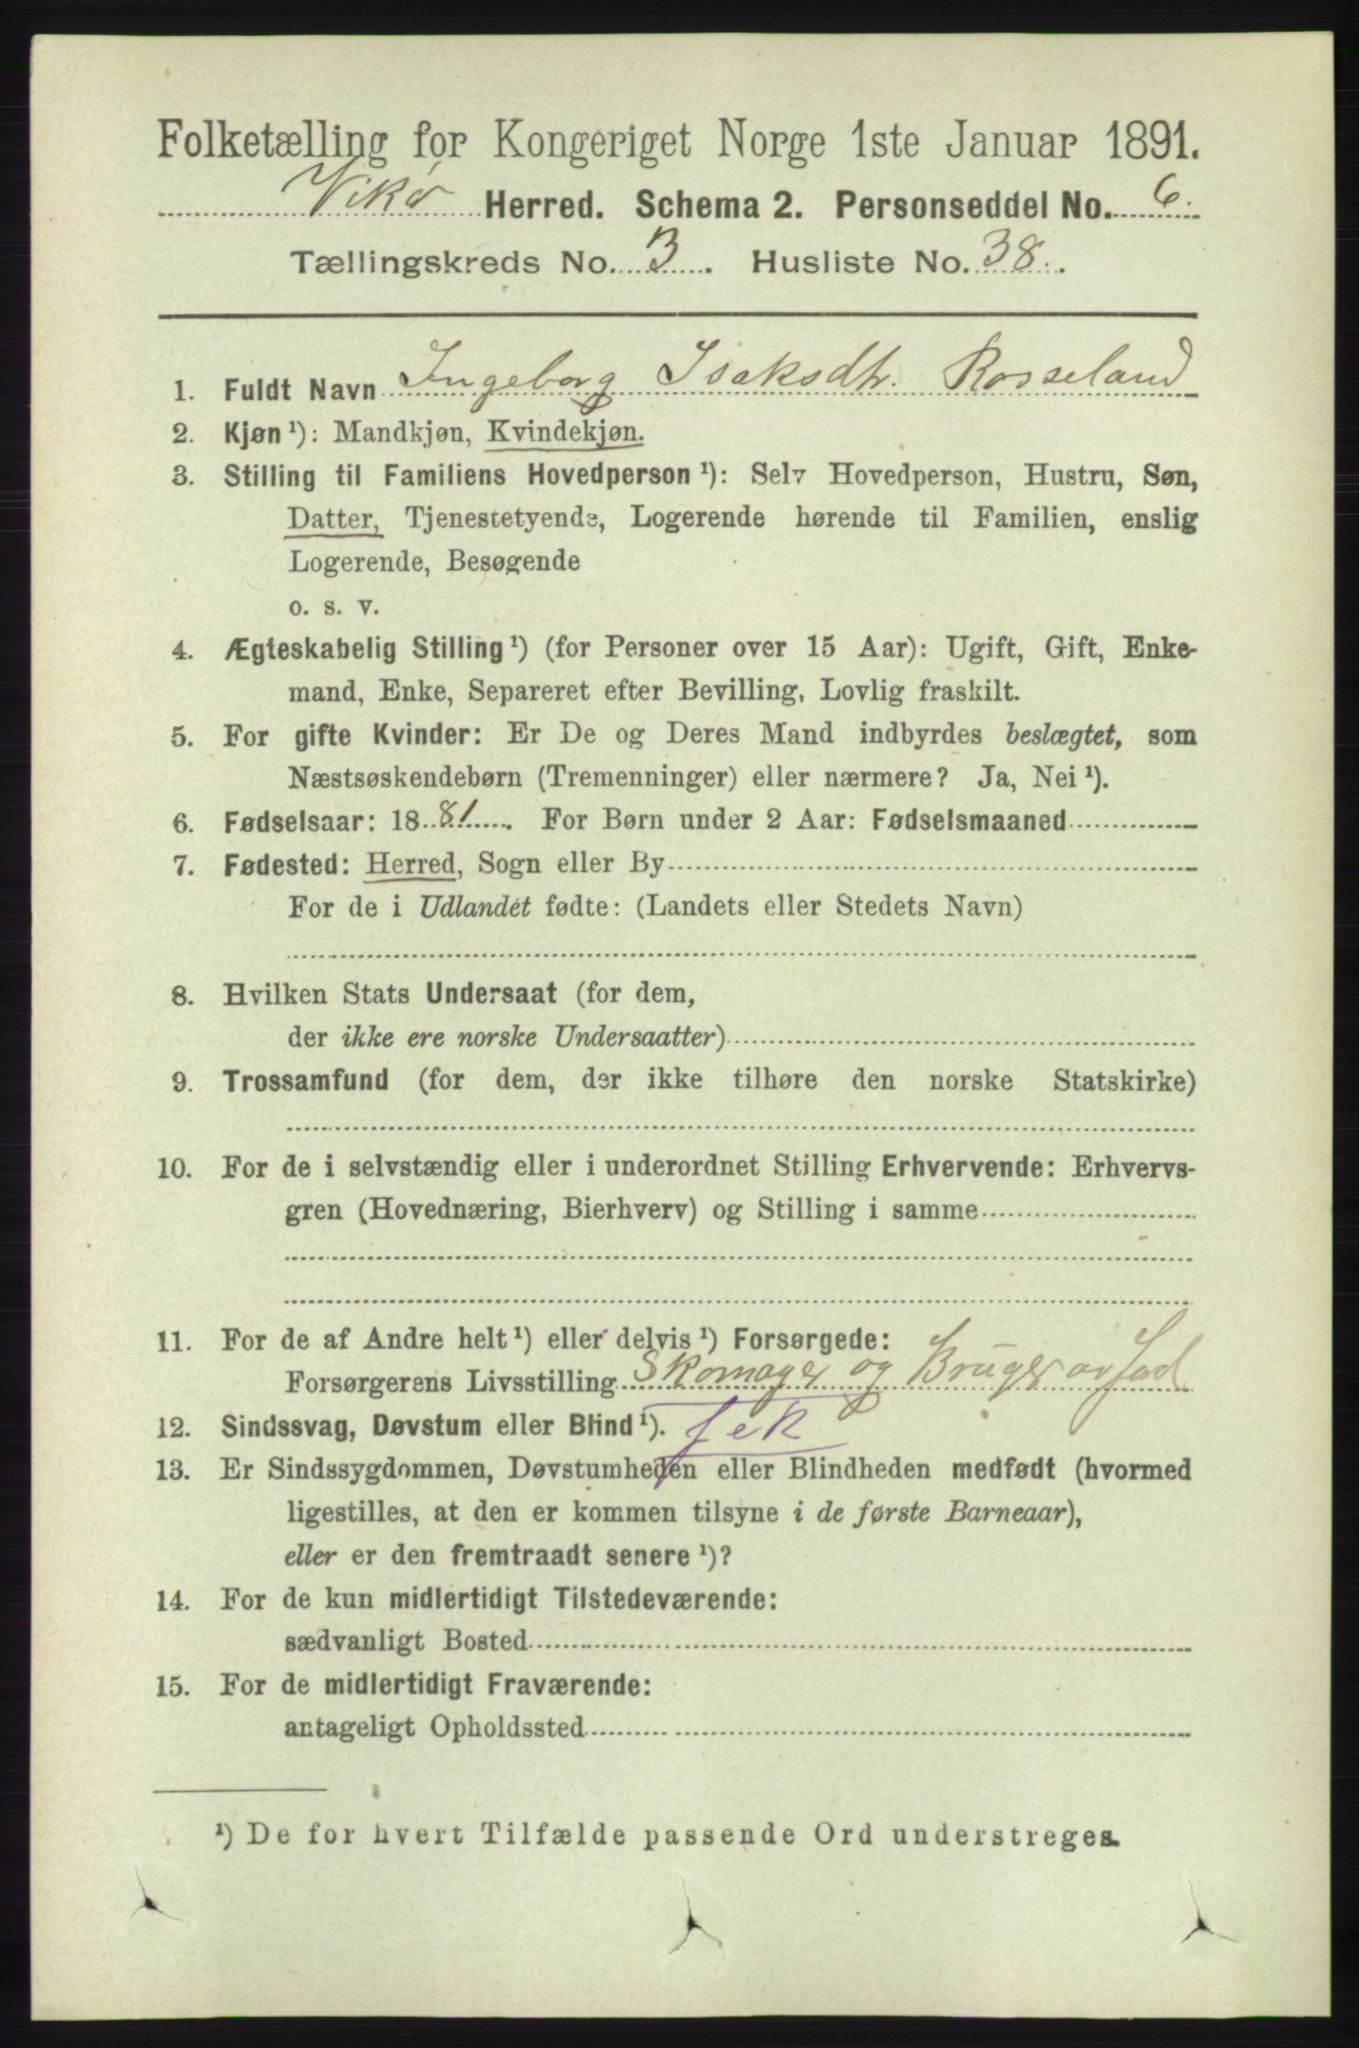 Folketælling for Kongeriget Norge 1ste Januar 1891.
Vikø Herred. Schema 2. Personseddel No. 6.
Tællingskreds No. 3. Husliste No. 38.
1. Fuldt Navn Ingeborg Isaksdtr. Rosseland
2. Kjøn ¹): Mandkjøn, Kvindekjøn.
3. Stilling til Familiens Hovedperson ¹): Selv Hovedperson, Hustru, Søn,
Datter, Tjenestetyende, Logerende hørende til Familien, enslig
Logerende, Besøgende
o. s. v.
4. Ægteskabelig Stilling ¹) (for Personer over 15 Aar): Ugift, Gift, Enke-
mand, Enke, Separeret efter Bevilling, Lovlig fraskilt.
5. For gifte Kvinder: Er De og Deres Mand indbyrdes beslægtet, som
Næstsøskendebørn (Tremenninger) eller nærmere? Ja, Nei ¹).
6. Fødselsaar: 1881. For Børn under 2 Aar: Fødselsmaaned
7. Fødested: Herred, Sogn eller By
For de i Udlandet fødte: (Landets eller Stedets Navn)
8. Hvilken Stats Undersaat (for dem,
der ikke ere norske Undersaatter)
9. Trossamfund (for dem, der ikke tilhøre den norske Statskirke)
10. For de i selvstændig eller i underordnet Stilling Erhvervende: Erhvervs-
gren (Hovednæring, Bierhverv) og Stilling i samme
11. For de af Andre helt ¹) eller delvis ¹) Forsørgede:
Forsørgerens Livsstilling Skomager og Bruger av Jord
12. Sindssvag, Døvstum eller Blind ¹).
13. Er Sindssygdommen, Døvstumheden eller Blindheden medfødt (hvormed
ligestilles, at den er kommen tilsyne i de første Barneaar),
eller er den fremtraadt senere ¹)?
14. For de kun midlertidigt Tilstedeværende:
sædvanligt Bosted
15. For de midlertidigt Fraværende:
antageligt Opholdssted
¹) De for hvert Tilfælde passende Ord understreges.